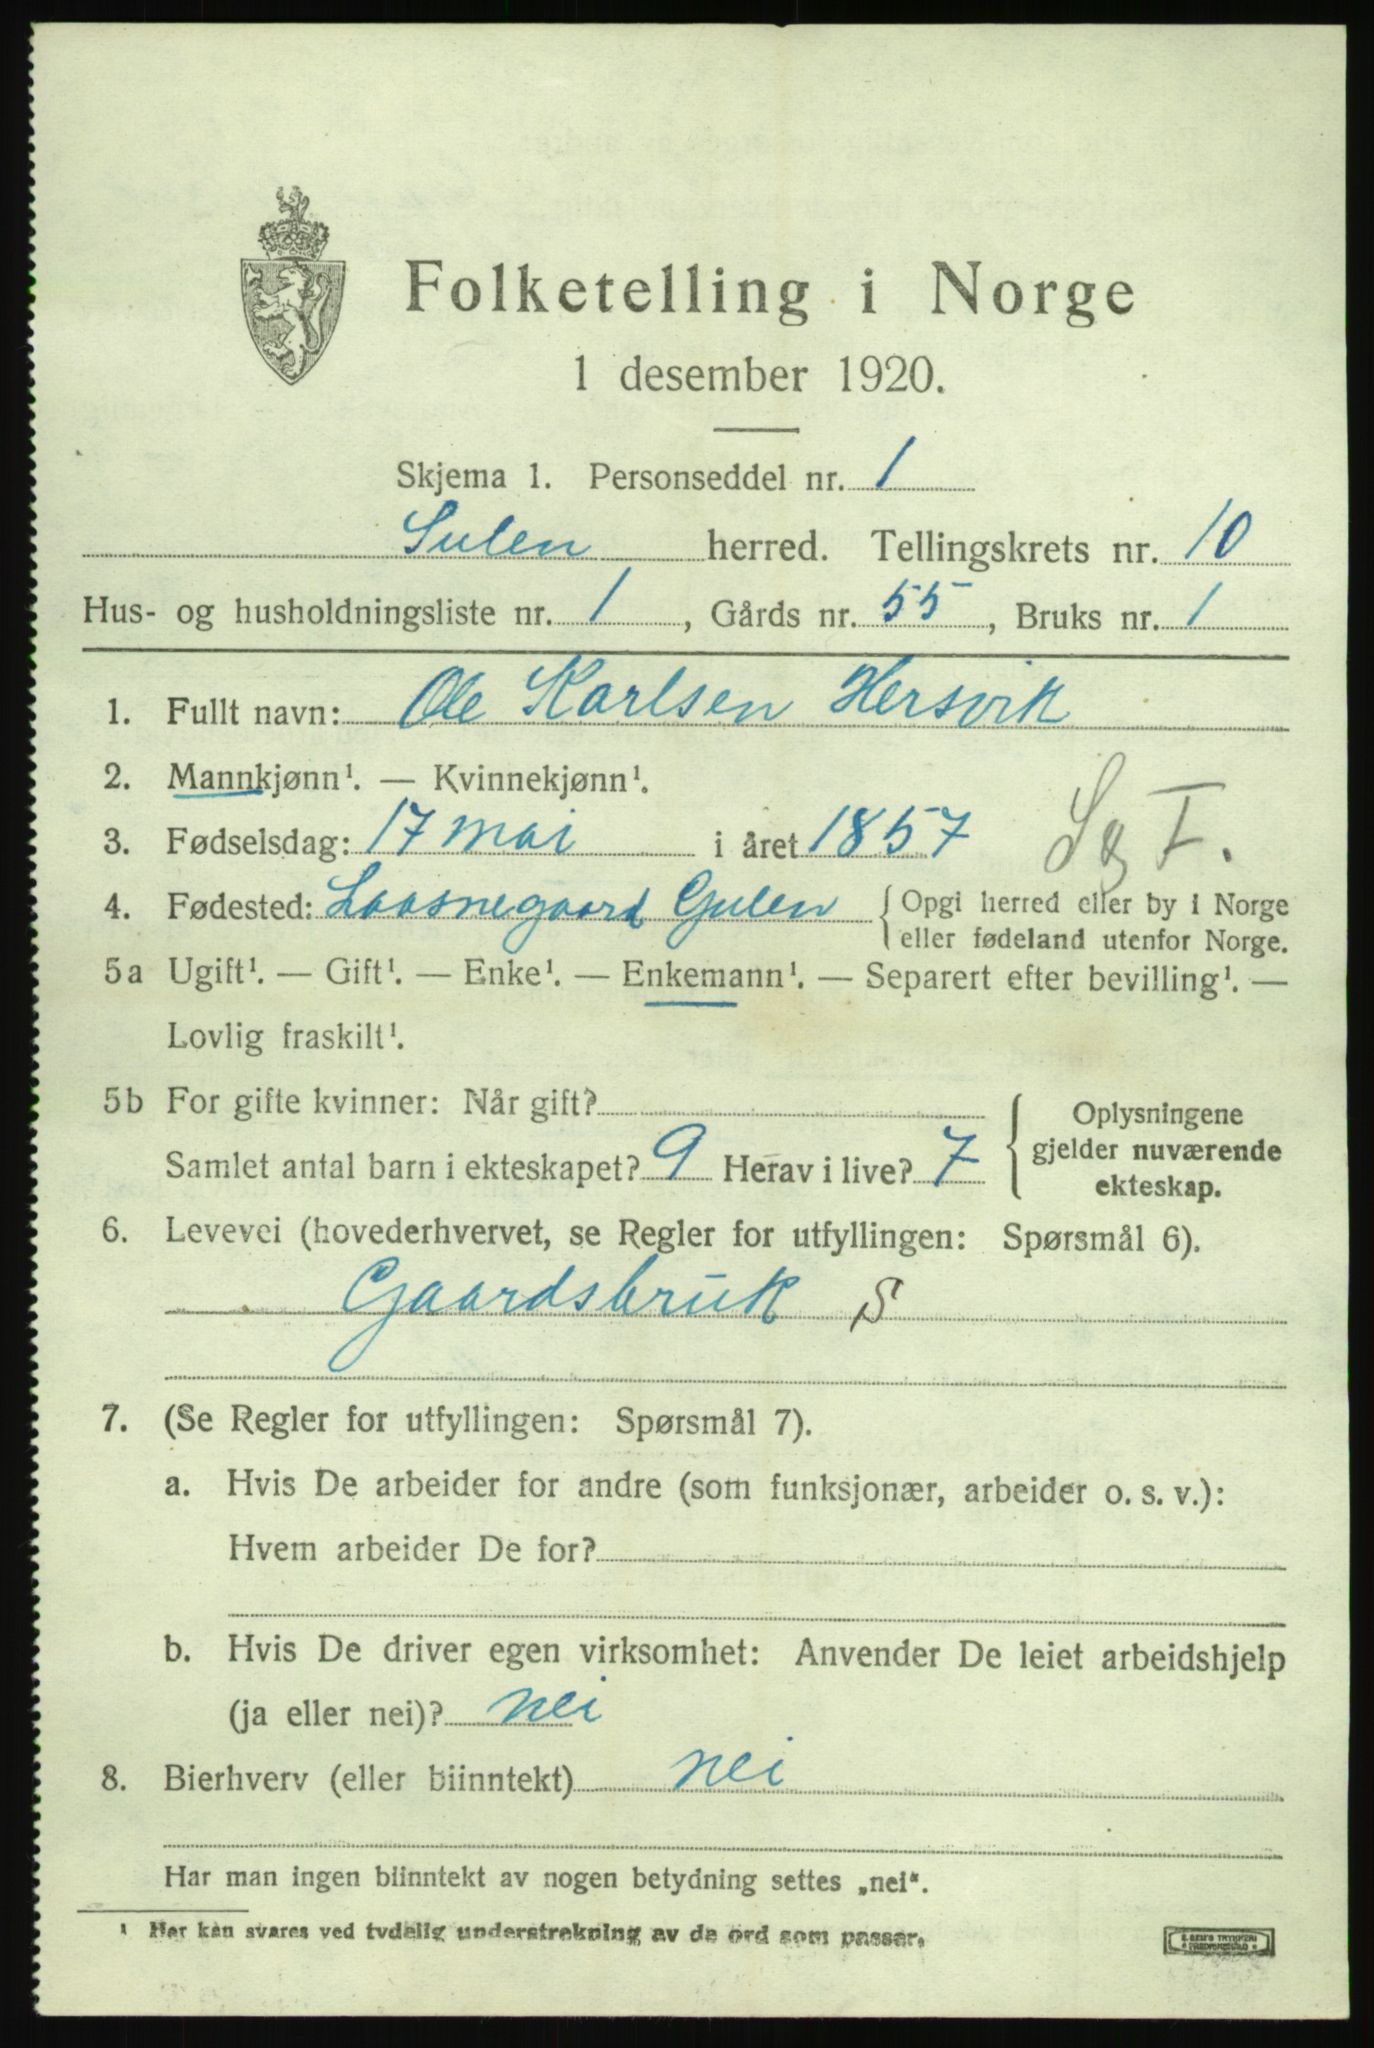 Folketelling i Norge
1 desember 1920.
Skjema 1. Personseddel nr. 1
Sulen herred. Tellingskrets nr. 10
Hus- og husholdningsliste nr. 1, Gårds nr. 55, Bruks nr. 1
1. Fullt navn: Ole Karlsen Hersvik
2. Mannkjønn¹. — Kvinnekjønn¹.
3. Fødselsdag: 17 mai i året 1857
S g F.
4. Fødested: Laasnegaard Gulen { Opgi herred eller by i Norge
eller fødeland utenfor Norge.
5a Ugift¹. — Gift¹. — Enke¹. — Enkemann¹. — Separert efter bevilling¹. —
Lovlig fraskilt¹.
5b For gifte kvinner: Når gift?
Samlet antal barn i ekteskapet? 9 Herav i live? 7
{ Oplysningene
gjelder nuværende
ekteskap.
6. Levevei (hovederhvervet, se Regler for utfyllingen: Spørsmål 6).
Gaardsbruk S
7. (Se Regler for utfyllingen: Spørsmål 7).
a. Hvis De arbeider for andre (som funksjonær, arbeider o. s. v.):
Hvem arbeider De for?
b. Hvis De driver egen virksomhet: Anvender De leiet arbeidshjelp
(ja eller nei)? nei
8. Bierhverv (eller biinntekt) nei
Har man ingen biinntekt av nogen betydning settes „nei“.
¹ Her kan svares ved tydelig understrekning av de ord som passer.